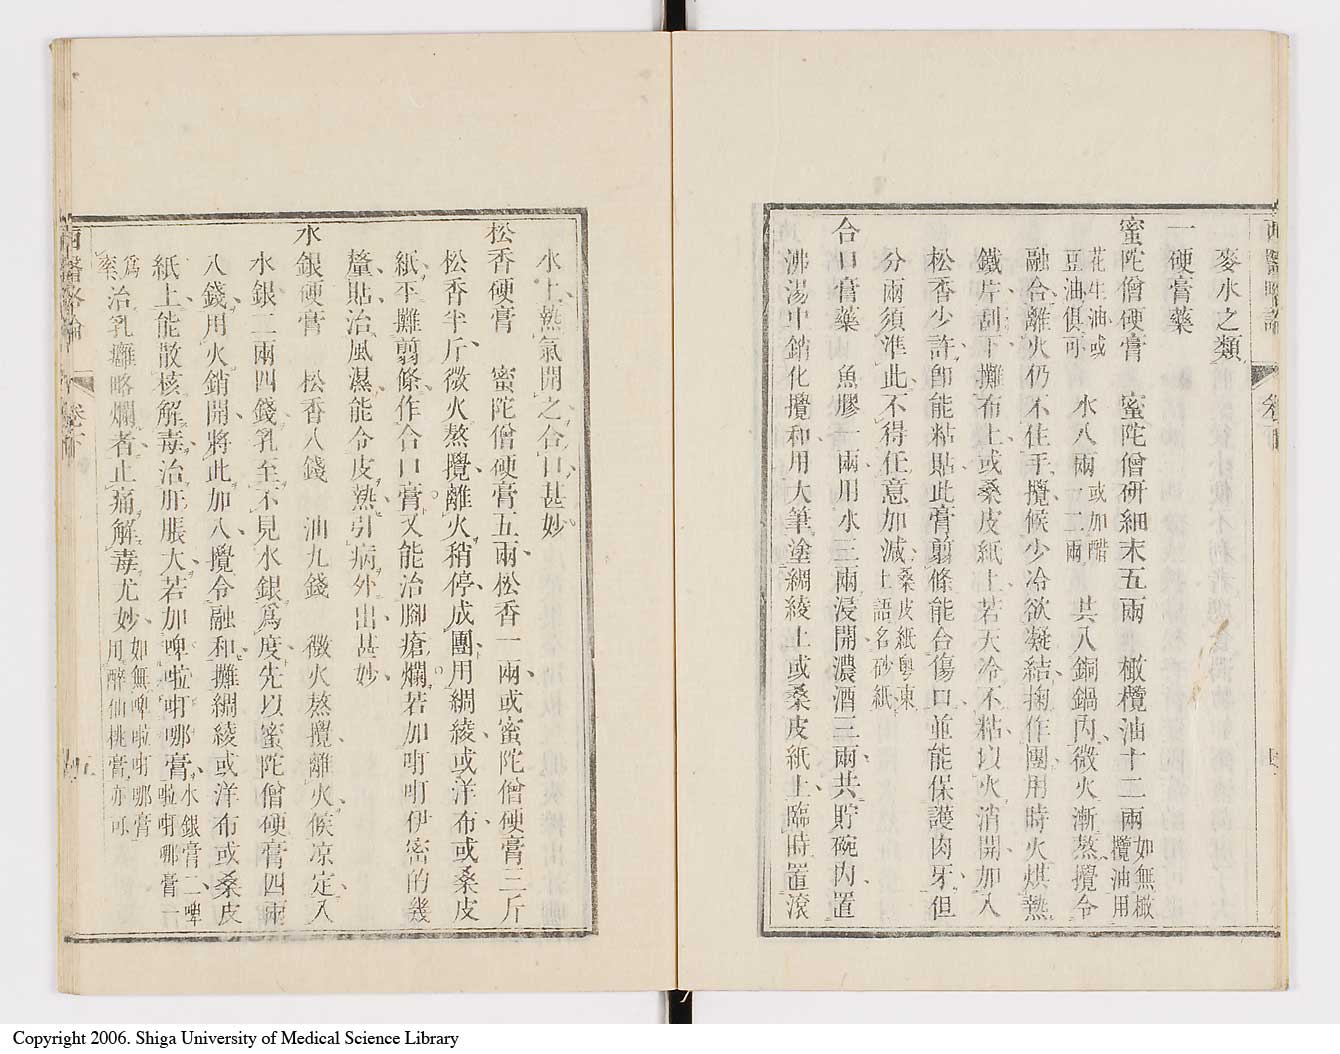 麥水之類
一硬膏藥
蜜陀僧硬膏　蜜陀僧研細末五兩　橄欖油十二兩如無橄欖油用
花生油或豆油俱可　水八兩或加醋一二兩　共入銅鍋內微火漸熬攪令
融合離火仍不住手攪候少冷欲凝結掬作團用時火烘熱
鐵片刮下攤布上或桑皮紙上若天冷不粘以火消開加入
松香少許卽能粘貼此膏翦條能合傷口並能保護肉牙但
分兩須準此不得任意加減桑皮紙粤東土語名砂紙
合口膏藥　魚膠一兩用水三兩浸開濃酒三兩共貯碗內置
沸湯中銷化攪和用大筆塗綢綾上或桑皮紙上臨時置滾
西醫略論　卷下
水上熱氣開之合口甚妙
松香硬膏　蜜陀僧硬膏五兩松香一兩或蜜陀僧硬膏三斤
松香半斤微火熬攪離火稍停成團用綢綾或洋布或桑皮
紙平攤翦條作合口膏又能治腳瘡爛若加吖叮伊密的幾
釐貼治風濕能令皮熱引病外出甚妙
水銀硬膏　松香八錢　油九錢　微火熬攪離火候凉定入
水銀二兩四錢乳至不見水銀爲度先以蜜陀僧硬膏四兩
八錢用火銷開將此加入攪令融和攤綢綾或洋布或桑皮
紙上能散核解毒治肝脹大若加啤啦吖哪膏水銀膏二啤啦吖哪膏一
爲率治乳癰略爛者止痛解毒尤妙如無啤啦吖哪膏用醉仙桃膏亦可
西醫略論　卷下